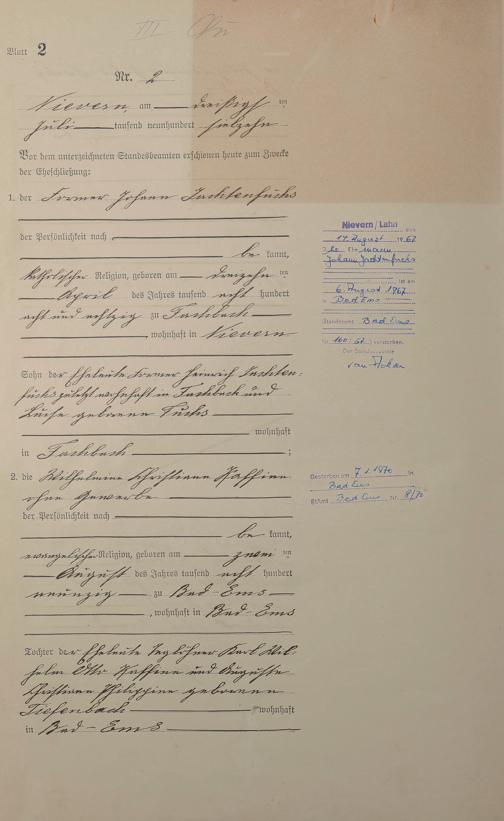 Blatt 2
Nr. 2
Nievern, am dreißigsten
Juli tausend neunhundert
Vor dem unterzeichneten Standesbeamten erschienen heute zum Zwecke
der Eheschließung:
1. der Former Johann Jachtenfuchs
der Persönlichkeit nach
be kannt,
katholischer Religion, geboren am dreizehn ten
April des Jahres tausend acht hundert
acht und achtzig zu Fachbach
, wohnhaft in Nievern
Sohn der Eheleute Former Heinrich Jachten-
fuchs zuletzt wohnhaft in Fachbach und
Luise geborene Fuchs
wohnhaft
in Fachbach ;
2. die Wilhelmine Christiane Kaffine
ohne Gewerbe
der Persönlichkeit nach
be kannt,
evangelischer Religion, geboren am zwei ten
August des Jahres tausend acht hundert
neunzig zu Bad-Ems
, wohnhaft in Bad-Ems
Tochter der Eheleute Taglöhner Karl Wil-
helm Otto Kaffine und Auguste
Christiane Philippine geborenen
Tiefenbach wohnhaft
in Bad-Ems
Nievern/Lahn, den
17. August 1967
Johann Jachtenfuchs
ist am
6. August 1967
in Bad Ems
Standesamt Bad Ems
Nr. 160/67) verstorben.
Der Standesbeamte
Gestorben am 7.1.1970 in
Bad Ems
StAmt Bad Ems Nr. 8/70